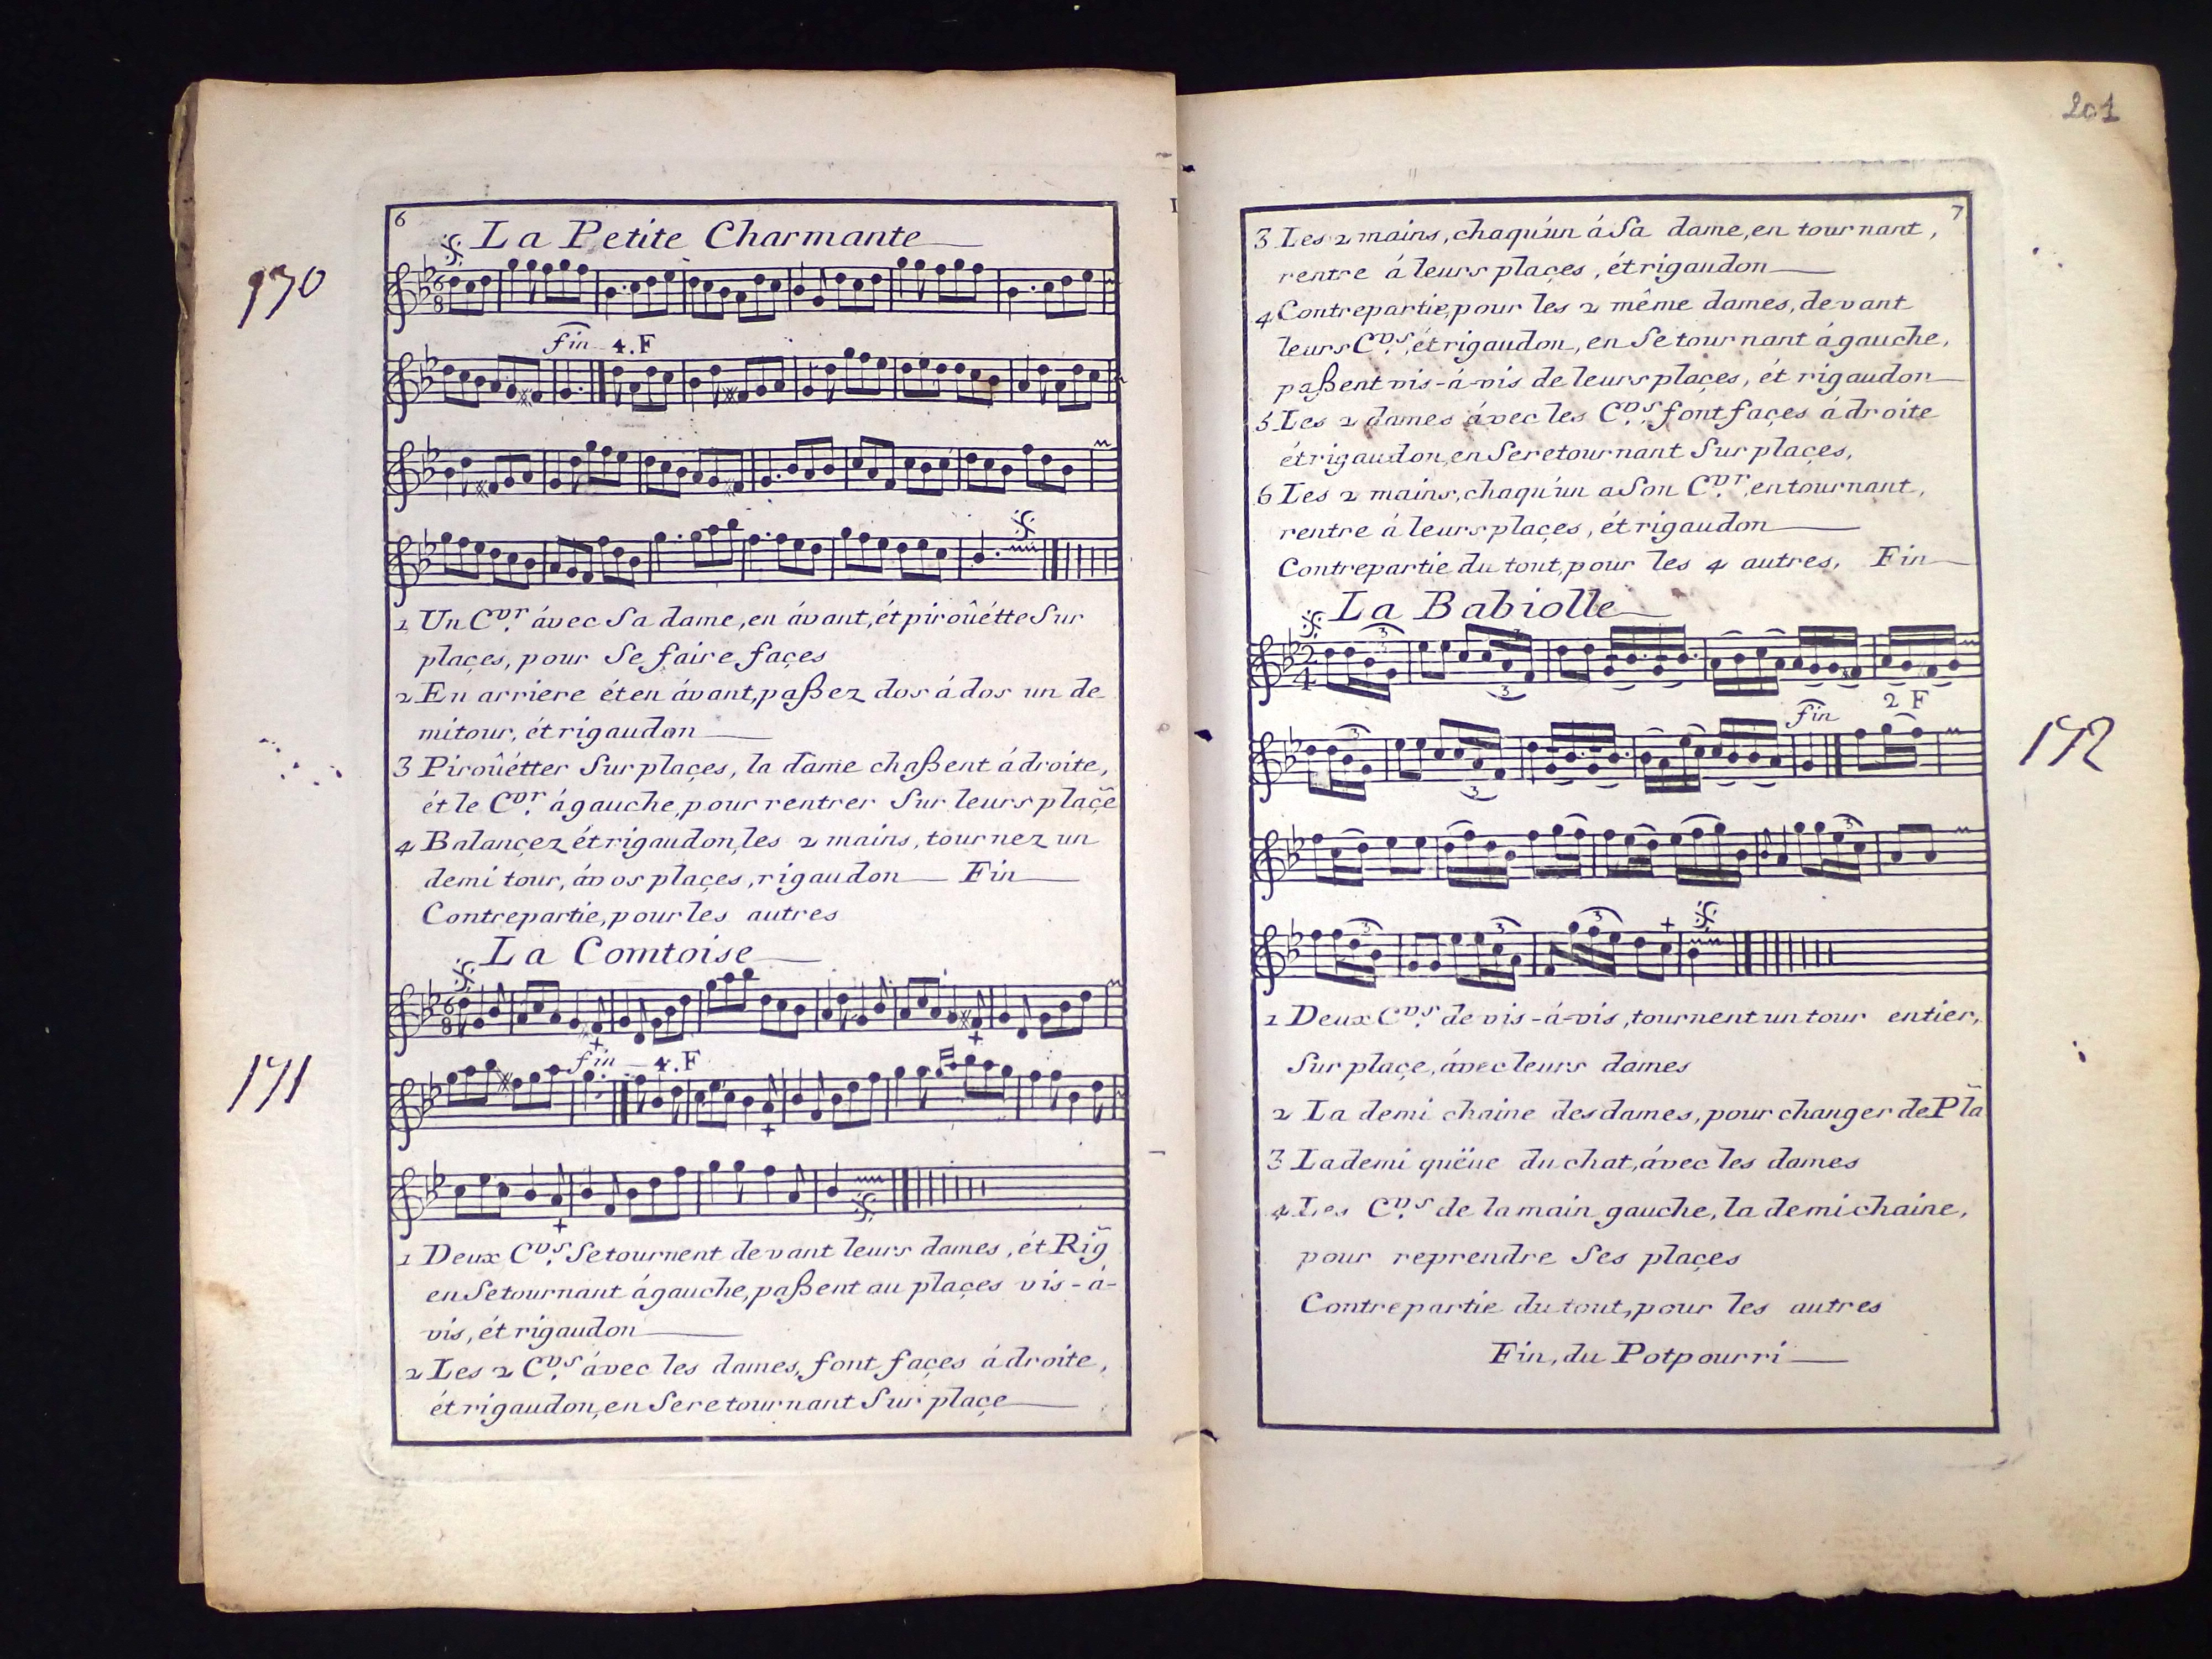 170
6
La Petite Charmante
6
8
fin 4.F
1 Un C.Dr ávec Sa dame, en ávant, ét piroûétte Sur
plaçes, pour Se faire façes
2 En arriere ét en ávant, paßez dos á dos un de
mi tour, ét rigaudon
3 Piroûétter Sur plaçes, la dame chaßent á droite,
ét le C.Dr á gauche, pour rentrer Sur leurs plaçe
4 Balançez ét rigaudon, les 2 mains, tournez un
demi tour, á vos plaçes, rigaudon Fin
Contrepartie, pour les autres
La Comtoise
6
8
171
fin 4.F
1 Deux C.Ds Se tournent devant leurs dames, ét Rig
en Se tournant á gauche, paßent au plaçes vis-á-
vis, ét rigaudon
2 Les 2 C.Ds ávec les dames, font façes á droite,
ét rigaudon, en Se retournant Sur plaçe
201
7
3 Les 2 mains, chaqu'un á Sa dame, en tournant,
rentre á leurs plaçes, ét rigaudon
4 Contrepartie, pour les 2 même dames, devant
leurs C.Ds, ét rigaudon, en Se tournant á gauche,
paßent vis-á-vis de leurs plaçes, ét rigaudon
5 Les 2 dames ávec les C.Ds font façes á droite
ét rigaudon, en Se retournant Sur plaçes,
6 Les 2 mains, chaqu'un a Son C.Dr, en tournant,
rentre á leurs plaçes, ét rigaudon
Contrepartie du tout, pour les 4 autres, Fin
La Babiolle
2
4
3
3
fin 2 F
3
3
172
3
3 3 3
1 Deux C.Ds de vis-á-vis, tournent un tour entier,
Sur plaçe, ávec leurs dames
2 La demi chaine des dames, pour changer de Pla
3 La demi quëue du chat, ávec les dames
4 Les C.Ds de la main gauche, la demi chaine,
pour reprendre Ses plaçes
Contrepartie du tout, pour les autres
Fin, du Potpourri